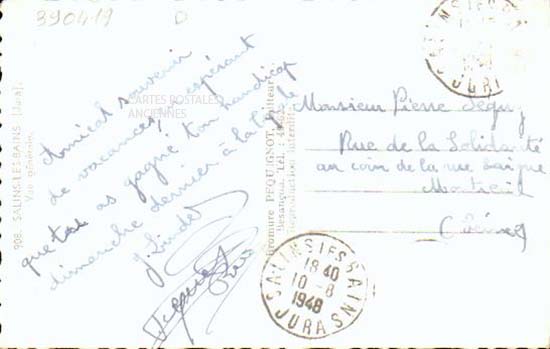 390419
D
Amical souvenir
de vacances, espérant
que tu as gagné ton handicap
dimanche dernier à la
J. Linder
CARTES POSTALES
ANCIENNES
908. SALINS-LES-BAINS (Jura)
Vue générale.
Bromure PEQUIGNOT, Editeur
Besançon. Tél.
Reproduction interdite
Monsieur Pierre Seguy
Rue de la Solidarité
au coin de la rue
Montreuil
(Seine)
SALINS LES BAINS
18 40
10 - 8
1948
JURA